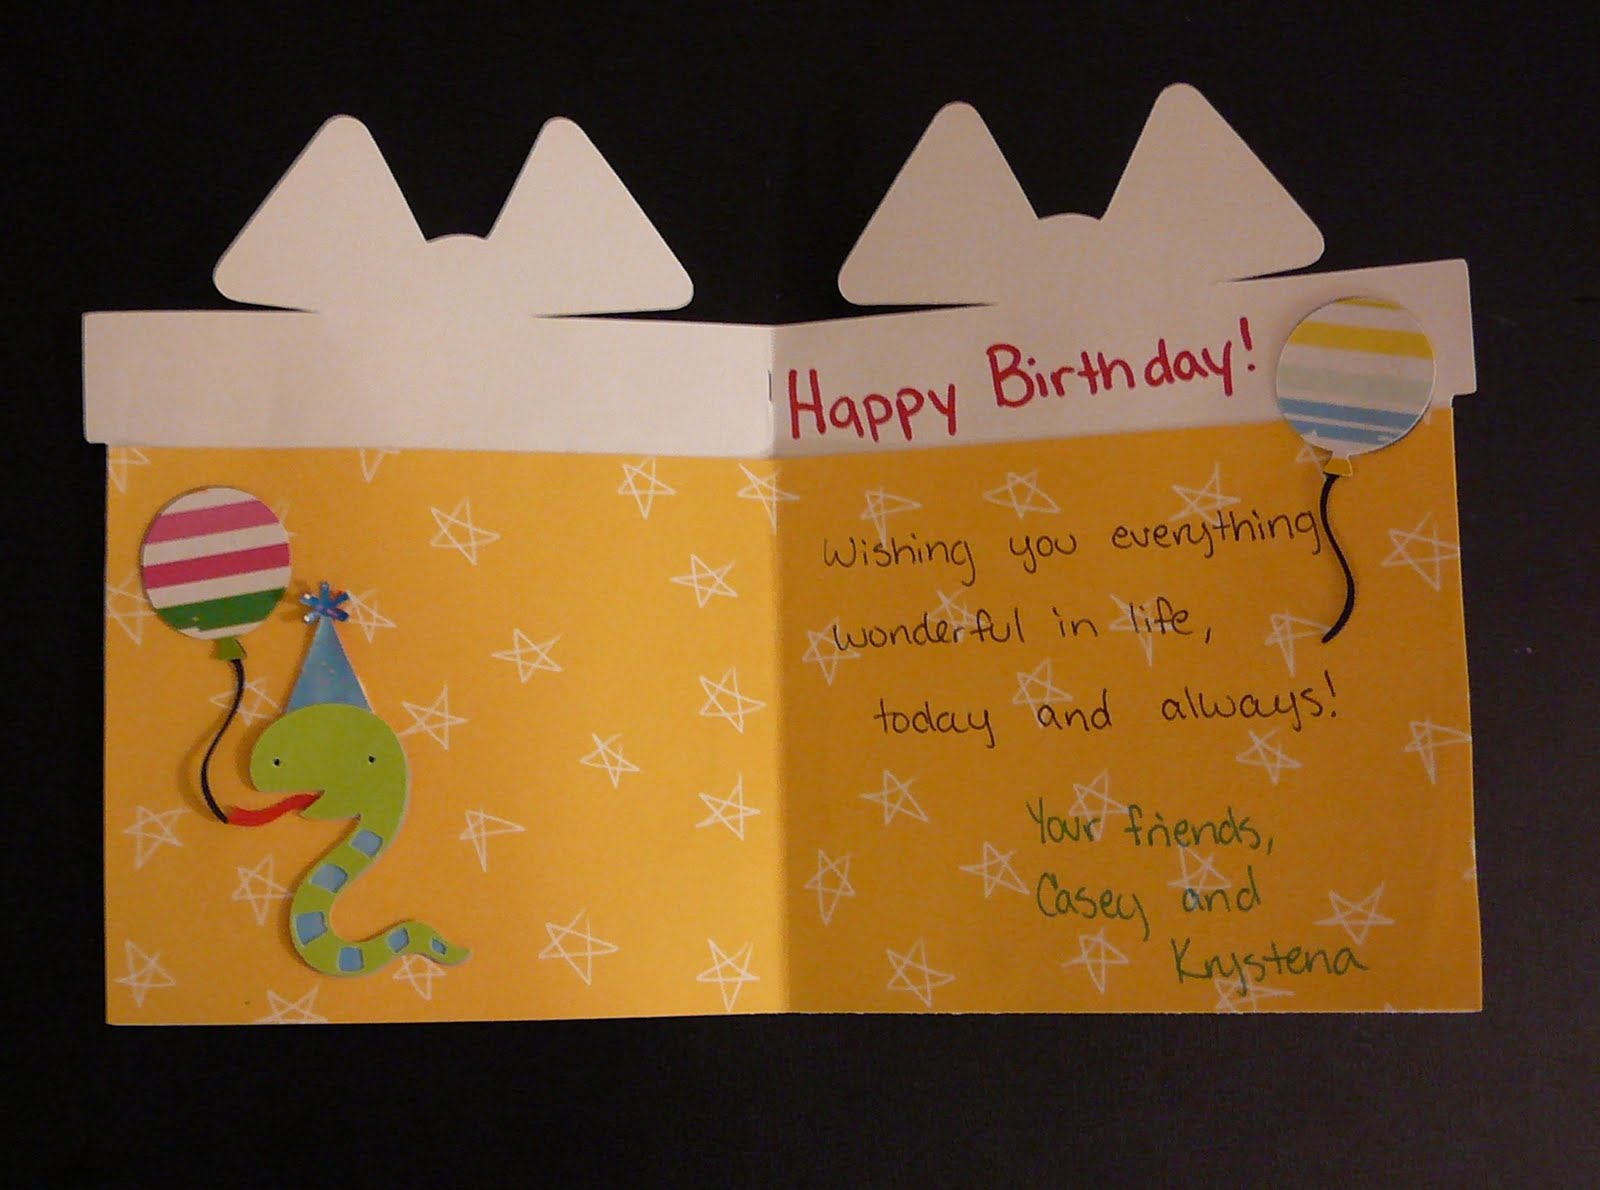 Happy Birthday!
Wishing you everything
wonderful in life,
today and always!
Your friends,
Casey and
Krystena